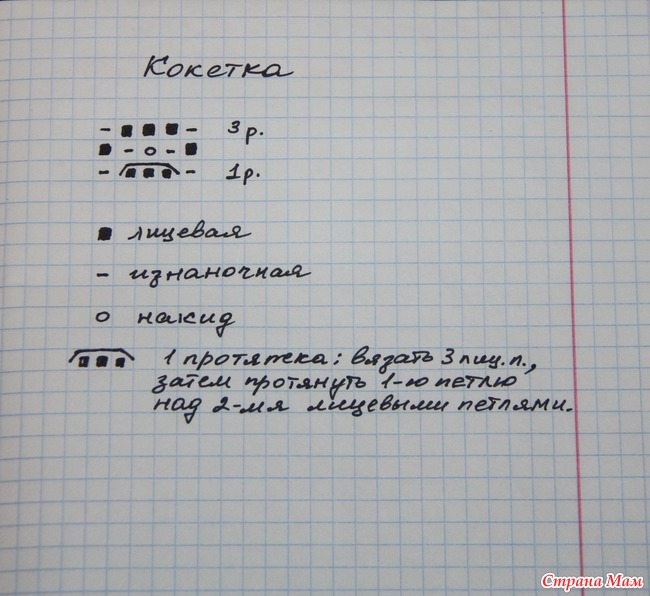 Кокетка
- ■ ■ ■ - 3 р.
■ - о - ■
- ■ ■ ■ - 1 р.
■ лицевая
- изнаночная
о накид
1 протяжка: вязать 3 лиц. п.,
затем протянуть 1-ю петлю
над 2-мя лицевыми петлями.
Страна Мам